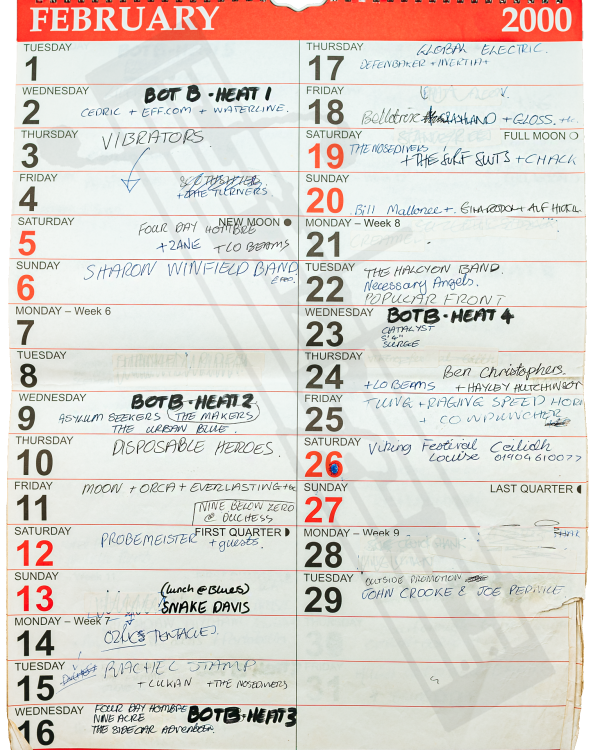 FEBRUARY 2000
TUESDAY
1
WEDNESDAY
2
BOT B - HEAT 1
CEDRIC + EFF.COM + WATERLINE.
THURSDAY
3
VIBRATORS
FRIDAY
4
+ THE TURNERS
SATURDAY
5
NEW MOON
FOUR DAY HOMBRE
+ ZANE + LO BEAMS
SUNDAY
6
SHARON WINFIELD BAND
MONDAY – Week 6
7
TUESDAY
8
WEDNESDAY
9
BOTB - HEAT 2
ASYLUM SEEKERS (THE MAKERS)
THE URBAN BLUE.
THURSDAY
10
DISPOSABLE HEROES.
FRIDAY
11
MOON + ORCA + EVERLASTING +
NINE BELOW ZERO
@ DUCHESS
SATURDAY
12
FIRST QUARTER
PROBEMEISTER
+ guests.
SUNDAY
13
(lunch @ Blues)
SNAKE DAVIS
MONDAY – Week 7
14
OZRICS TENTACLES
TUESDAY
15
RACHEL STAMP
+ LUKAN + THE NOSEDIVERS
WEDNESDAY
16
FOUR DAY HOMBRE
NINE ACRE
THE SIDECAR
BOTB - HEAT 3
THURSDAY
17
GLOBAL ELECTRIC.
DEFENBAKER + INERTIA +
FRIDAY
18
Bellatrix + GLOSS.
SATURDAY
19
FULL MOON
THE NOSEDIVERS
+ THE SURF SLUTS + CHALK
SUNDAY
20
Bill Mallonee +
MONDAY – Week 8
21
TUESDAY
22
THE HALCYON BAND.
Necessary Angels.
POPULAR FRONT
WEDNESDAY
23
BOTB - HEAT 4
CATALYST
5'4"
SURGE
THURSDAY
24
Ben Christophers
+ LO BEAMS + HAYLEY HUTCHINSON
FRIDAY
25
TUNG + RAGING SPEED HORN
+ COWPUNCHER
SATURDAY
26
Viking Festival Ceilidh
Louise 01904 610077
SUNDAY
27
LAST QUARTER
MONDAY – Week 9
28
TUESDAY
29
OUTSIDE PROMOTION
JOHN CROOKE & JOE PERNICE